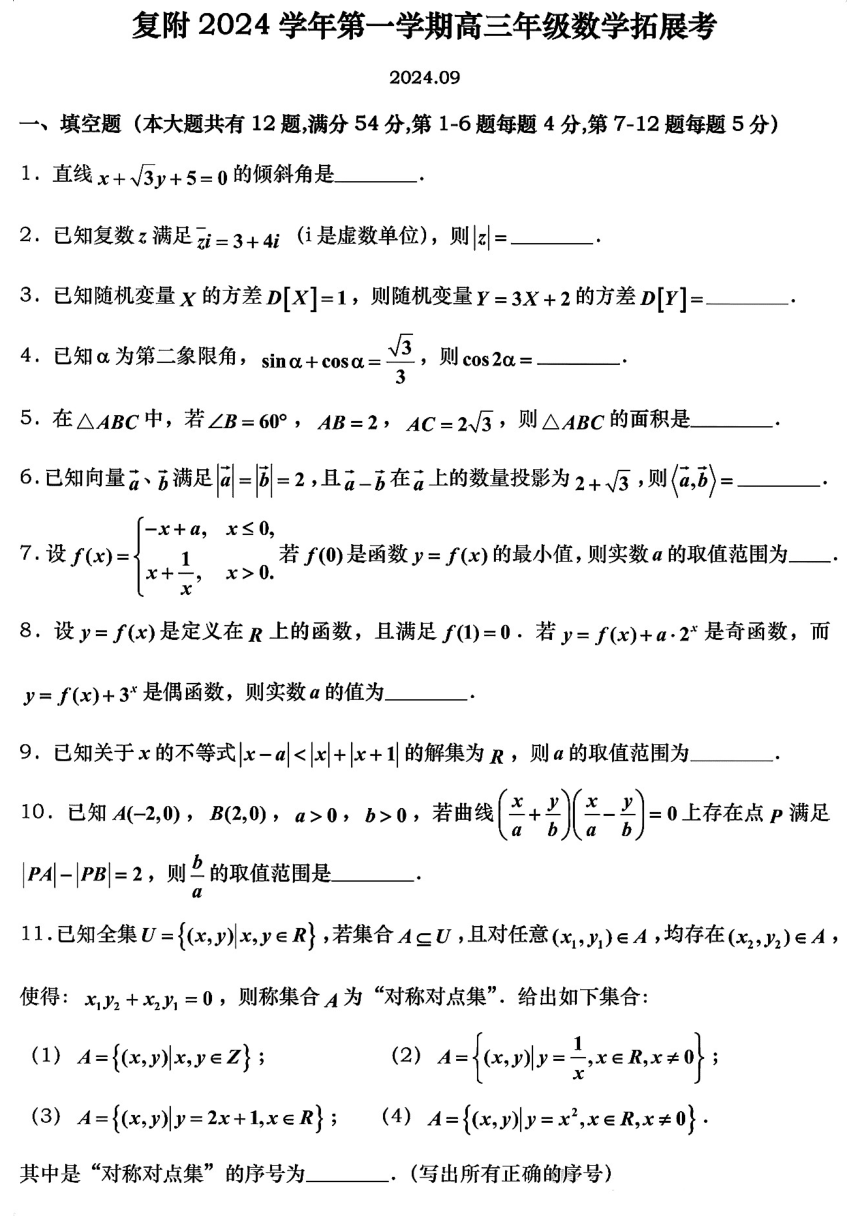 复附 2024 学年第一学期高三年级数学拓展考
2024.09
一、填空题（本大题共有 12 题,满分 54 分,第 1-6 题每题 4 分,第 7-12 题每题 5 分）
1. 直线 x+√3y+5=0 的倾斜角是______.
2. 已知复数 z 满足 z̄i=3+4i （i 是虚数单位），则|z|=______.
3. 已知随机变量 X 的方差 D[X]=1，则随机变量 Y=3X+2 的方差 D[Y]=______.
4. 已知 α 为第二象限角，sinα+cosα=√3/3，则 cos2α=______.
5. 在△ABC 中，若∠B=60°，AB=2，AC=2√3，则△ABC 的面积是______.
6.已知向量 a⃗、b⃗ 满足|a⃗|=|b⃗|=2,且 a⃗-b⃗ 在 a⃗ 上的数量投影为 2+√3,则⟨a⃗,b⃗⟩=______.
7.设 f(x)={-x+a, x≤0, x+1/x, x>0. 若 f(0) 是函数 y=f(x) 的最小值,则实数 a 的取值范围为___.
8. 设 y=f(x) 是定义在 R 上的函数，且满足 f(1)=0．若 y=f(x)+a·2ˣ 是奇函数，而
y=f(x)+3ˣ 是偶函数，则实数 a 的值为______.
9. 已知关于 x 的不等式|x-a|<|x|+|x+1| 的解集为 R，则 a 的取值范围为______.
10. 已知 A(-2,0)，B(2,0)，a>0，b>0，若曲线(x/a+y/b)(x/a-y/b)=0 上存在点 P 满足
|PA|-|PB|=2，则 b/a 的取值范围是______.
11.已知全集 U={(x,y)|x,y∈R},若集合 A⊆U,且对任意(x₁,y₁)∈A,均存在(x₂,y₂)∈A，
使得：x₁y₂+x₂y₁=0，则称集合 A 为“对称对点集”．给出如下集合：
（1）A={(x,y)|x,y∈Z}； （2）A={(x,y)|y=1/x,x∈R,x≠0}；
（3）A={(x,y)|y=2x+1,x∈R}； （4）A={(x,y)|y=x²,x∈R,x≠0}．
其中是“对称对点集”的序号为______.（写出所有正确的序号）